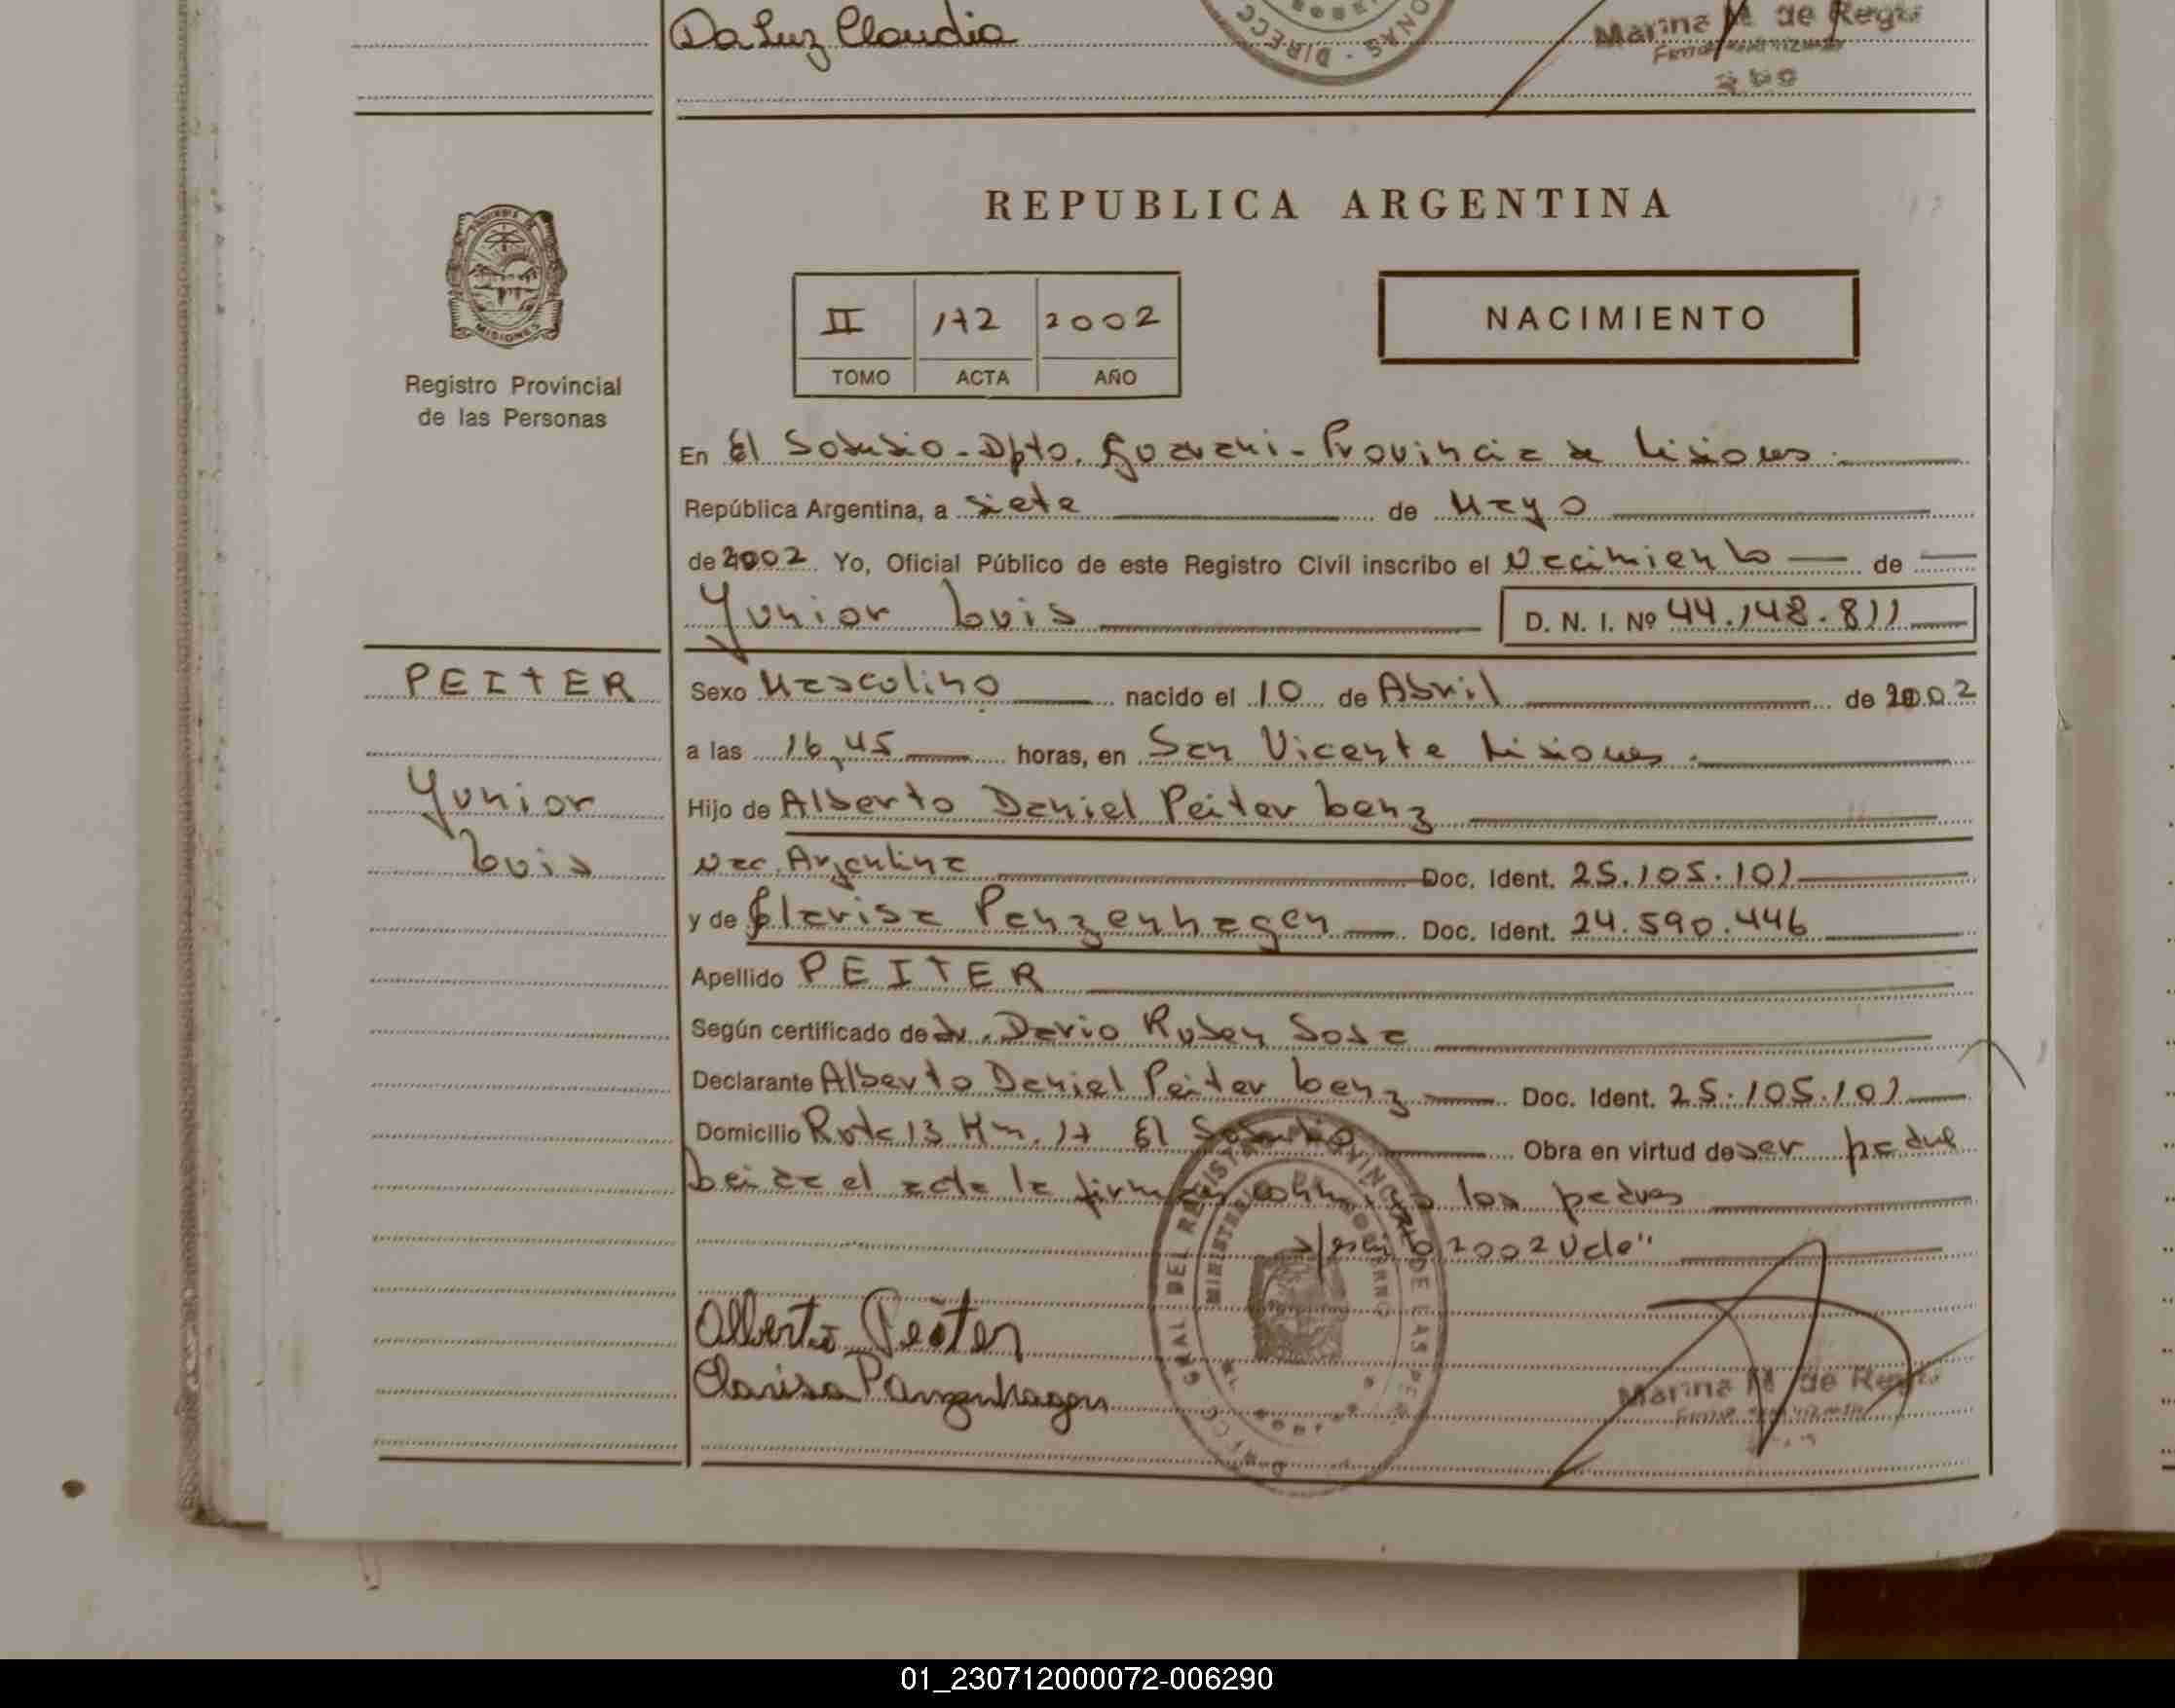 Da Luz Claudia
DIRECC
Marina M. de Regis
REPUBLICA ARGENTINA
MISIONES
Registro Provincial
de las Personas
II 172 2002
TOMO ACTA AÑO
NACIMIENTO
En El Soberbio - Dpto. Guarani - Provincia de Misiones.
República Argentina, a siete de Mayo
de 2002 Yo, Oficial Público de este Registro Civil inscribo el Nacimiento de
Yunior Luis D. N. I. Nº 44.148.811
PEITER
Sexo Masculino nacido el 10 de Abril de 2002
a las 16,45 horas, en San Vicente Misiones.
Yunior
Hijo de Alberto Daniel Peiter Lenz
Luis
Nac. Argentina Doc. Ident. 25.105.101
y de Clarisa Panzenhagen Doc. Ident. 24.590.446
Apellido PEITER
Según certificado de dr. Dario Ruben Sosa
Declarante Alberto Daniel Peiter Lenz Doc. Ident. 25.105.101
Domicilio Ruta 13 Km. 17 El Soberbio Obra en virtud de ser padre
Leida el acta la firman conmigo los padres
2002 Vale"
Alberto Peiter
Clarisa Panzenhagen
Marina M de Regis
01_230712000072-006290